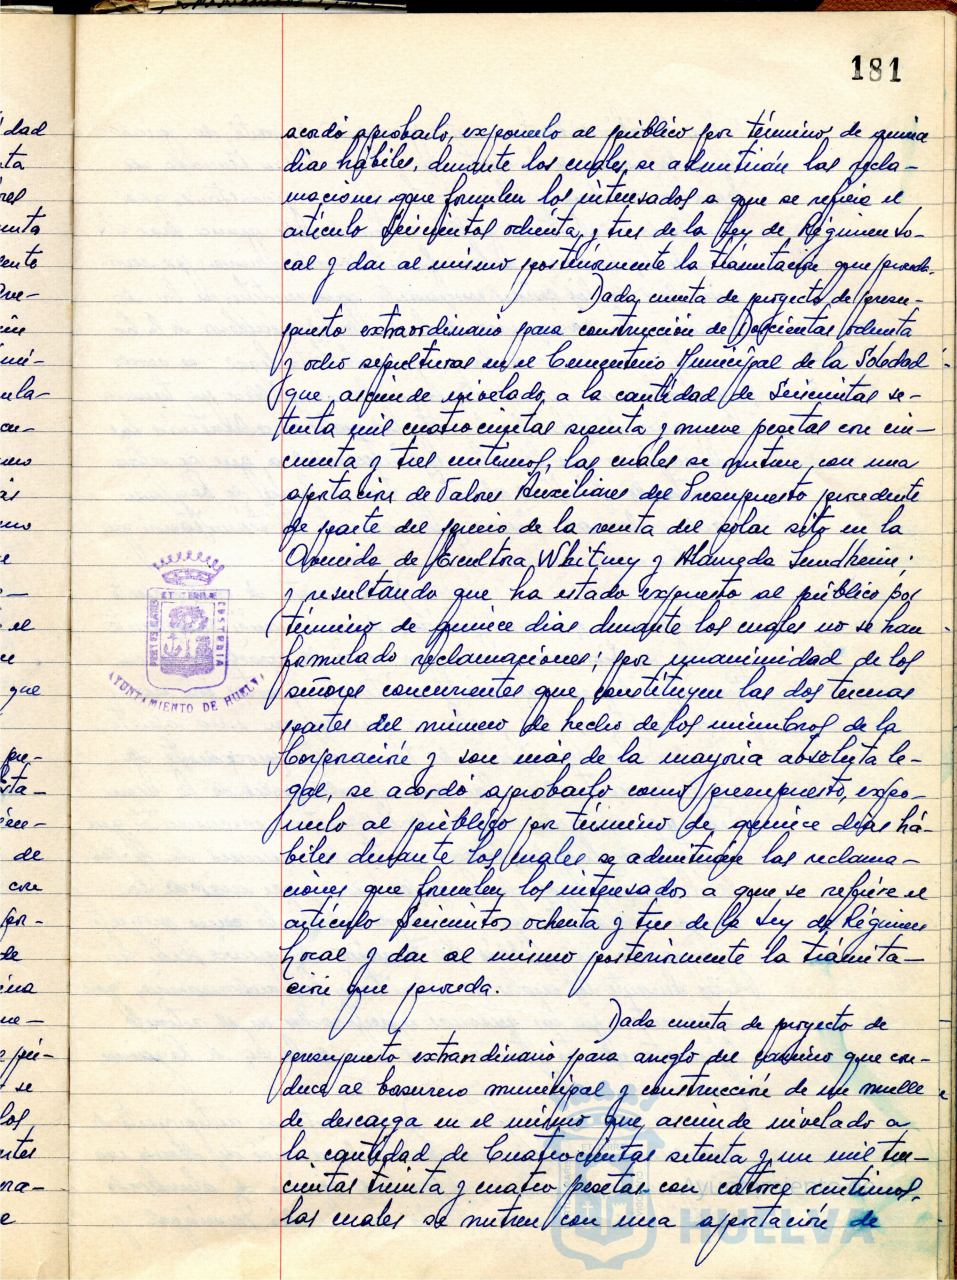 181
acordó aprobarlo, exponerlo al público por término de quince
dias hábiles, durante los cuales, se admitirán las recla-
maciones que formulen los interesados a que se refiere el
artículo Seiscientos ochenta y tres de la Ley de Régimen Lo-
cal y dar al mismo posteriormente la tramitación que proceda.
Dada cuenta de proyecto de presu-
puesto extraordinario para construcción de Doscientas ochenta
y ocho sepulturas en el Cementerio Municipal de la Soledad
que, asciende nivelado, a la cantidad de Seiscientas se-
tenta mil cuatrocientas sesenta y nueve pesetas con cin-
cuenta y tres centimos, las cuales se nutren, con una
aportación de Valores Auxiliares del Presupuesto procedente
de parte del precio de la venta del solar sito en la
Avenida de Escultora Whitney y Alameda Sundheim;
y resultando que ha estado expuesto al público por
término de quince dias durante los cuales no se han
formulado reclamaciones; por unanimidad de los
señores concurrentes que, constituyen las dos terceras
partes del número de hecho de los miembros de la
Corporación y son más de la mayoria absoluta le-
gal, se acordó aprobarlo como presupuesto, expo-
nerlo al público por término de quince dias há-
biles durante los cuales se admitirán las reclama-
ciones que formulen los interesados a que se refiere el
artículo Seiscientos ochenta y tres de la Ley de Régimen
Local y dar al mismo posteriormente la tramita-
ción que proceda.
Dada cuenta de proyecto de
presupuesto extraordinario para arreglo del camino que con-
duce al basurero municipal y construcción de un muelle
de descarga en el mismo que, asciende nivelado a
la cantidad de Cuatrocientas setenta y un mil tres-
cientas treinta y cuatro pesetas con catorce centimos,
las cuales se nutren con una aportación de
AYUNTAMIENTO DE HUELVA
PORTUS MARIS ET TERRAE CUSTODIA
Ayuntamiento
HUELVA